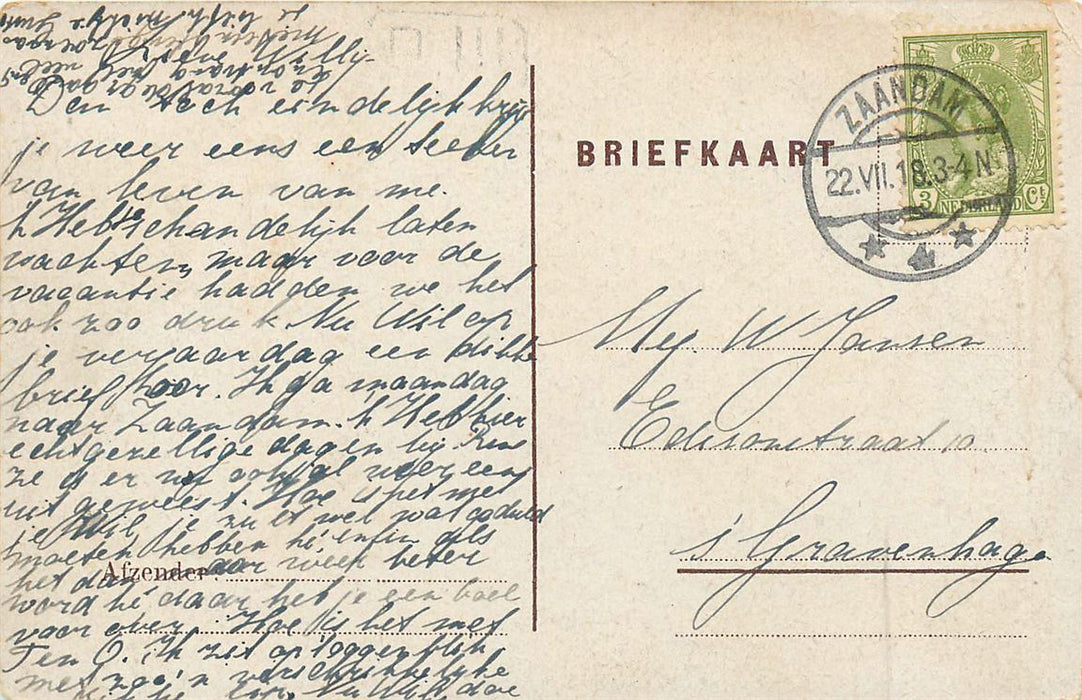 Den toch eindelijk krijg
je weer eens een teeken
van leven van me.
k Heb je schandelijk laten
wachten, maar voor de
vacantie hadden we het
ook zoo druk. Nu Wil op
je verjaardag een dikke
brief hoor. Ik ga maandag
naar Zaandam. k Heb hier
echt gezellige dagen bij
ze is er nu ook al weer eens
uit geweest. Hoe is het met
je Wil, je zult wel wat geduld
moeten hebben hè, enfin als
het dan maar weer beter
word hè daar heb je een boel
voor over. Hoe is het met
Ten O. Ik zit op 't oogenblik
met zoo'n verschrikkelijke
Afzender:
BRIEFKAART
ZAANDAM
22.VII.18.3-4 N
3 NEDERLAND Ct
Mej. W Jansen
Edisonstraat 10
's Gravenhage